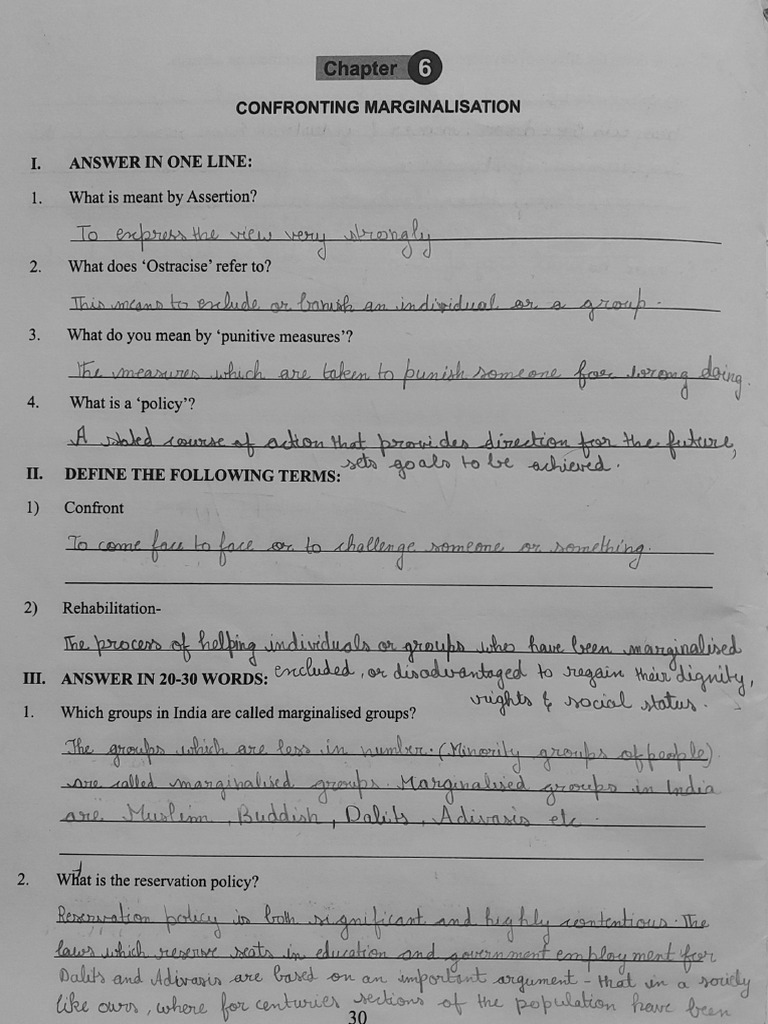 Chapter 6
CONFRONTING MARGINALISATION
I. ANSWER IN ONE LINE:
1. What is meant by Assertion?
To express the view very strongly
2. What does 'Ostracise' refer to?
This means to exclude or banish an individual or a group.
3. What do you mean by 'punitive measures'?
The measures which are taken to punish someone for wrong doing.
4. What is a 'policy'?
A stated course of action that provides direction for the future,
sets goals to be achieved.
II. DEFINE THE FOLLOWING TERMS:
1) Confront
To come face to face or to challenge someone or something.
2) Rehabilitation-
The process of helping individuals or groups who have been marginalised
excluded, or disadvantaged to regain their dignity,
rights & social status.
III. ANSWER IN 20-30 WORDS:
1. Which groups in India are called marginalised groups?
The groups which are less in number. (Minority groups of people)
are called marginalised groups. Marginalised groups in India
are Muslim, Buddish, Dalits, Adivasis etc.
2. What is the reservation policy?
Reservation policy is both significant and highly contentious. The
laws which reserve seats in education and government employment for
Dalits and Adivasis are based on an important argument - that in a society
like ours, where for centuries sections of the population have been
30